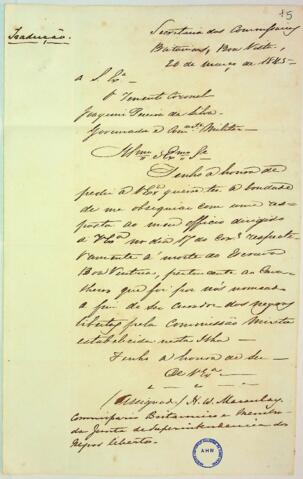 75
Traducção.
Secretaria dos Commissarios
Britanicos, Boa Vista,
20 de março de 1845.
A S. Exª
O Tenente Coronel
Joaquim Pereira da Silva
Governador e Comte Militar
Illmo e Exmo Sr
Tenho a honra de
pedir a V Exª queira ter a bondade
de me obsequiar com uma res-
posta ao meu officio dirigido
a V Exª no dia 17 do corre respecti-
vamente á morte do Escravo
Boa Ventura, pertencente ao
que foi por nós nomeado
a fim de ser curador dos negros
libertos pela Commissão Mixta
estabelecida nesta Ilha
Tenho a honra de ser
De V Exª
(Assigned) H. W. Macaulay
Commissario Britannico e Membro
da Junta de Superintendencia dos
Negros libertos.
AHN